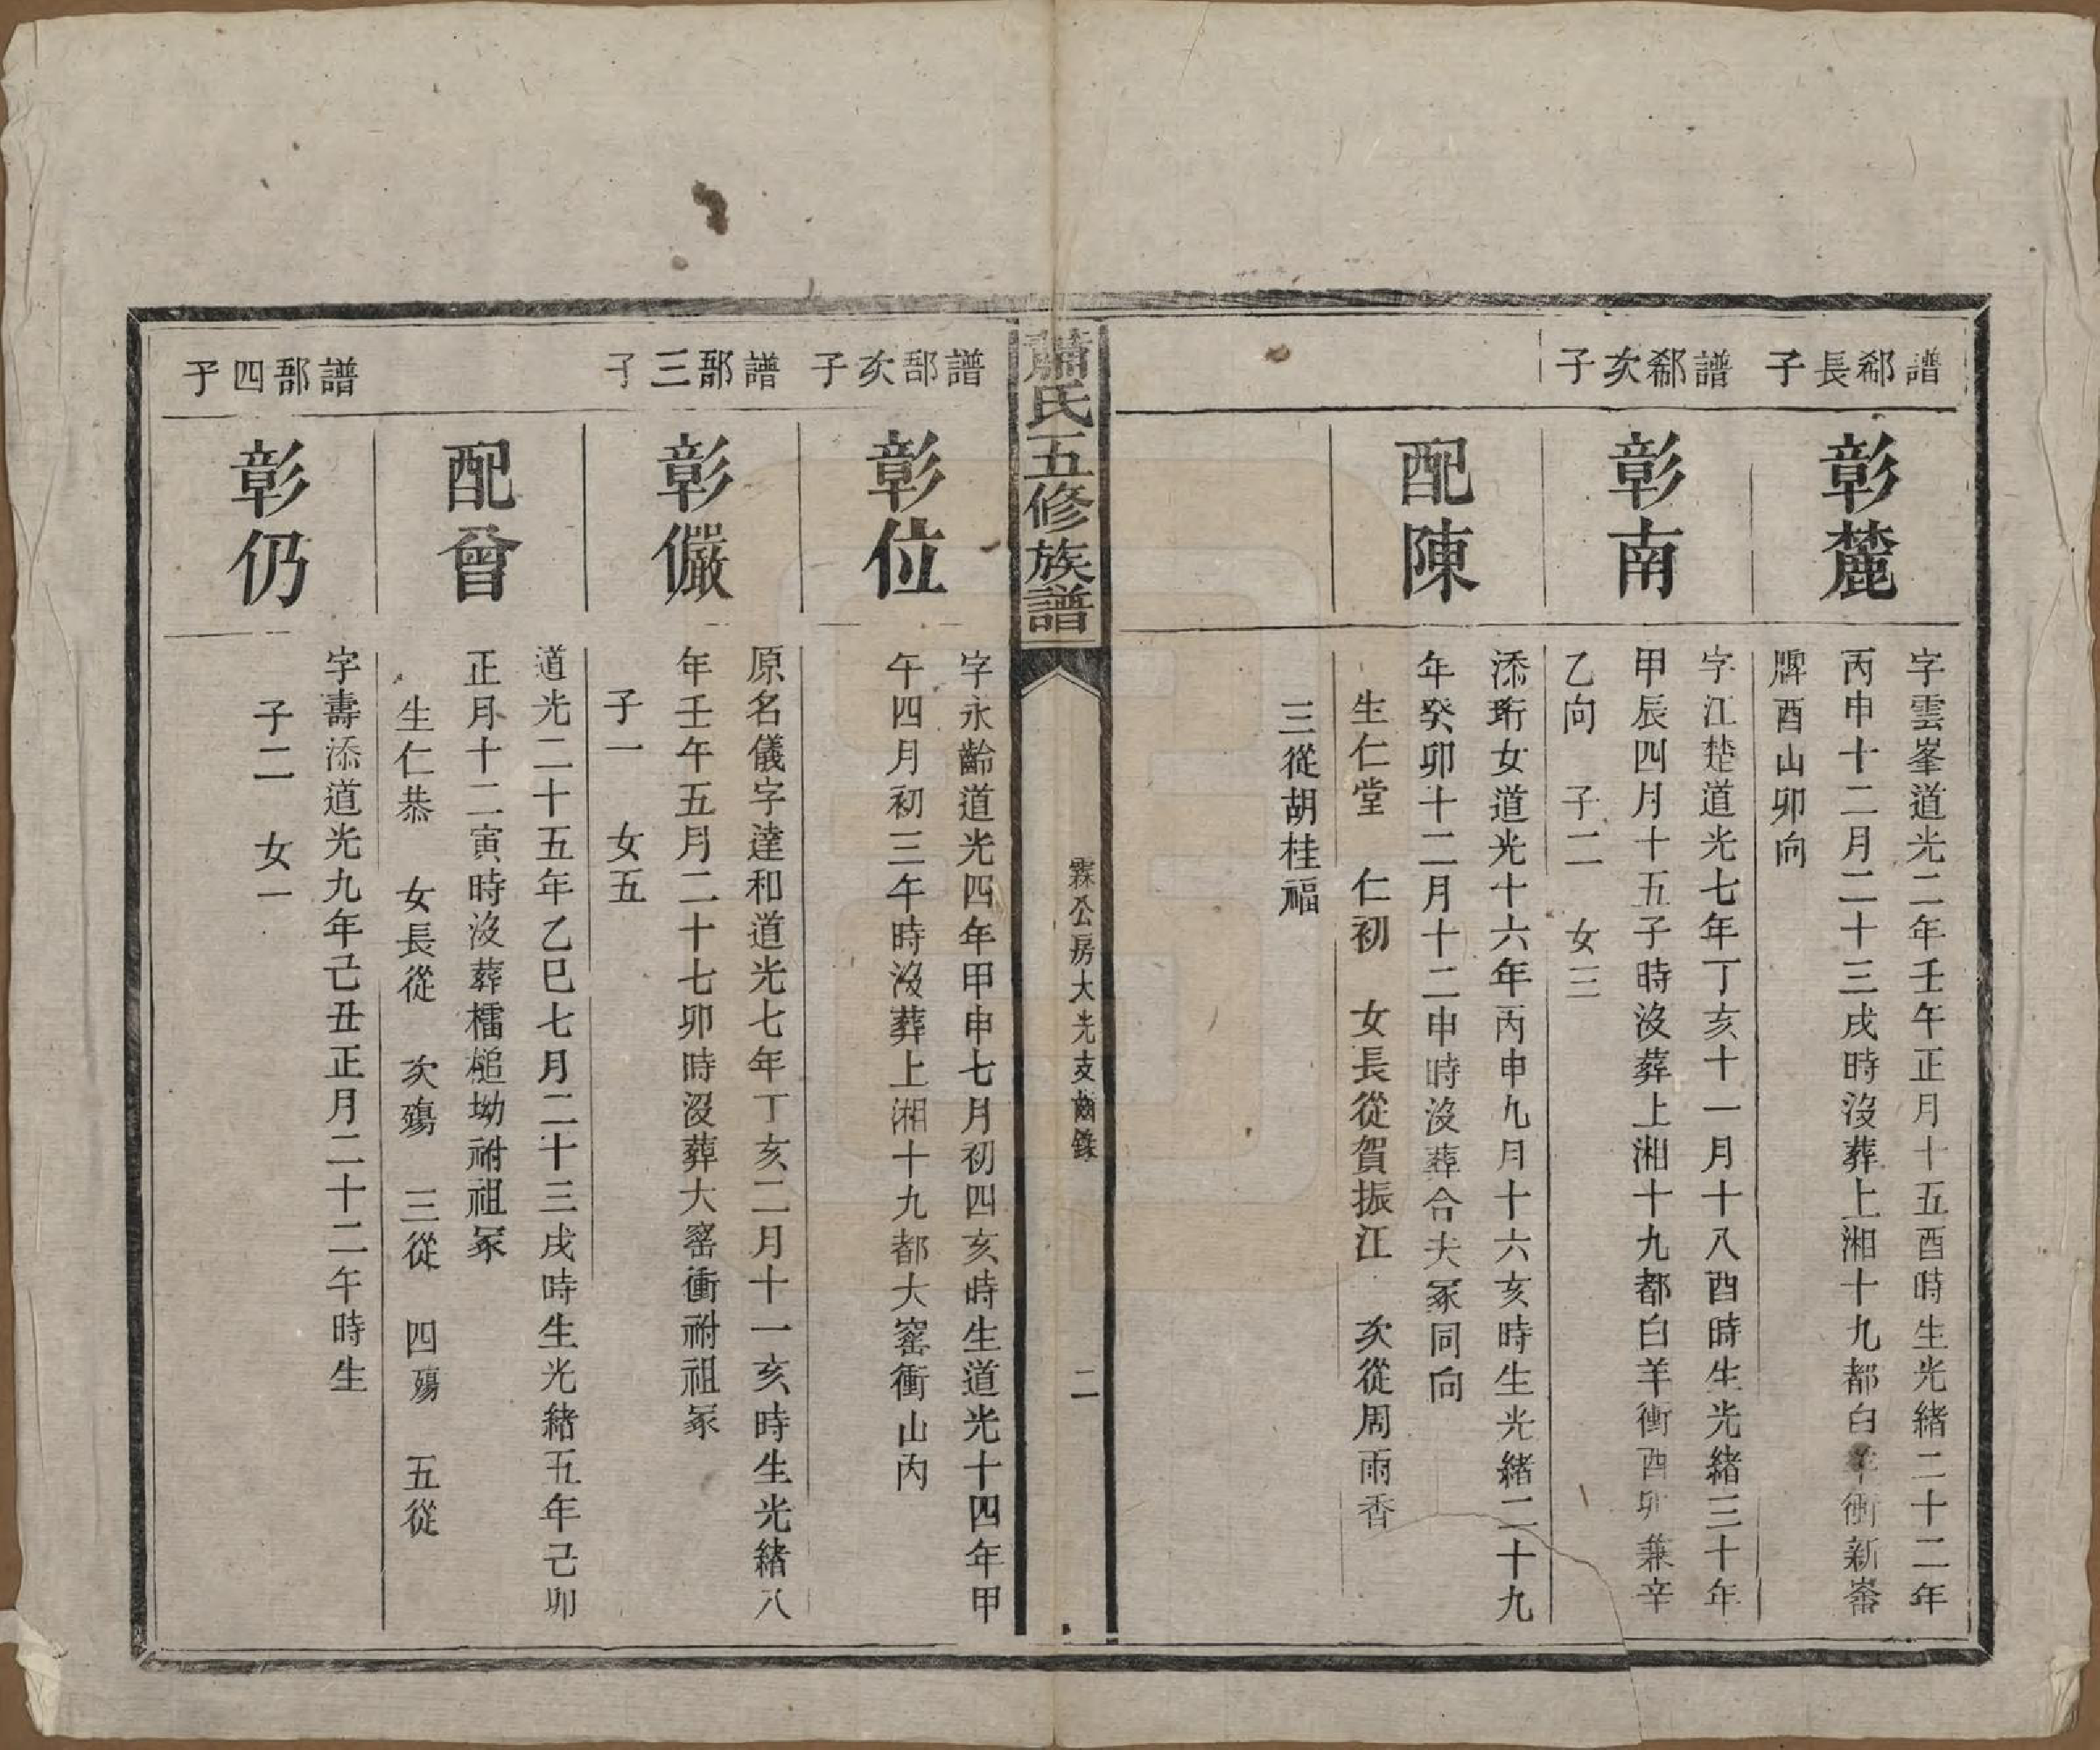 譜郗長子
彰麓
字雲峯道光二年壬午正月十五酉時生光緒二十二年
丙申十二月二十三戌時沒葬上湘十九都白羊衝新崙
牌酉山卯向
譜郗次子
彰南
字江楚道光七年丁亥十一月十八酉時生光緒三十年
甲辰四月十五子時沒葬上湘十九都白羊衝酉卯兼辛
乙向 子二 女三
配陳
添珩女道光十六年丙申九月十六亥時生光緒二十九
年癸卯十二月十二申時沒葬合夫冢同向
生仁堂 仁初 女長從賀振江 次從周雨香
三從胡桂福
蕭氏五修族譜
霖公房大光支齒錄
二
譜郚次子
彰位
字永齡道光四年甲申七月初四亥時生道光十四年甲
午四月初三午時沒葬上湘十九都大窰衝山內
譜郚三子
彰儼
原名儀字達和道光七年丁亥二月十一亥時生光緒八
年壬午五月二十七卯時沒葬大窰衝祔祖冢
子一 女五
配曾
道光二十五年乙巳七月二十三戌時生光緒五年己卯
正月十二寅時沒葬櫺槌坳祔祖冢
生仁恭 女長從 次殤 三從 四殤 五從
譜郚四子
彰仍
字壽添道光九年己丑正月二十二午時生
子二 女一